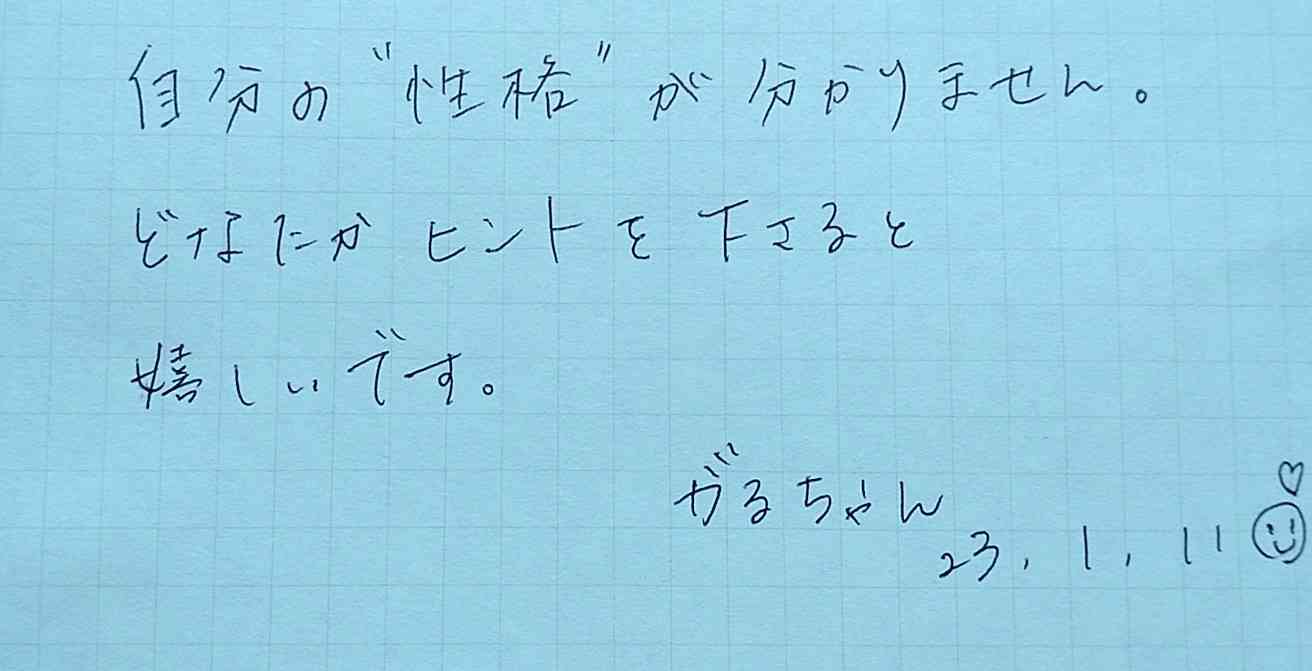 自分の“性格”が分かりません。
どなたかヒントを下さると
嬉しいです。
がるちゃん
23.1.11